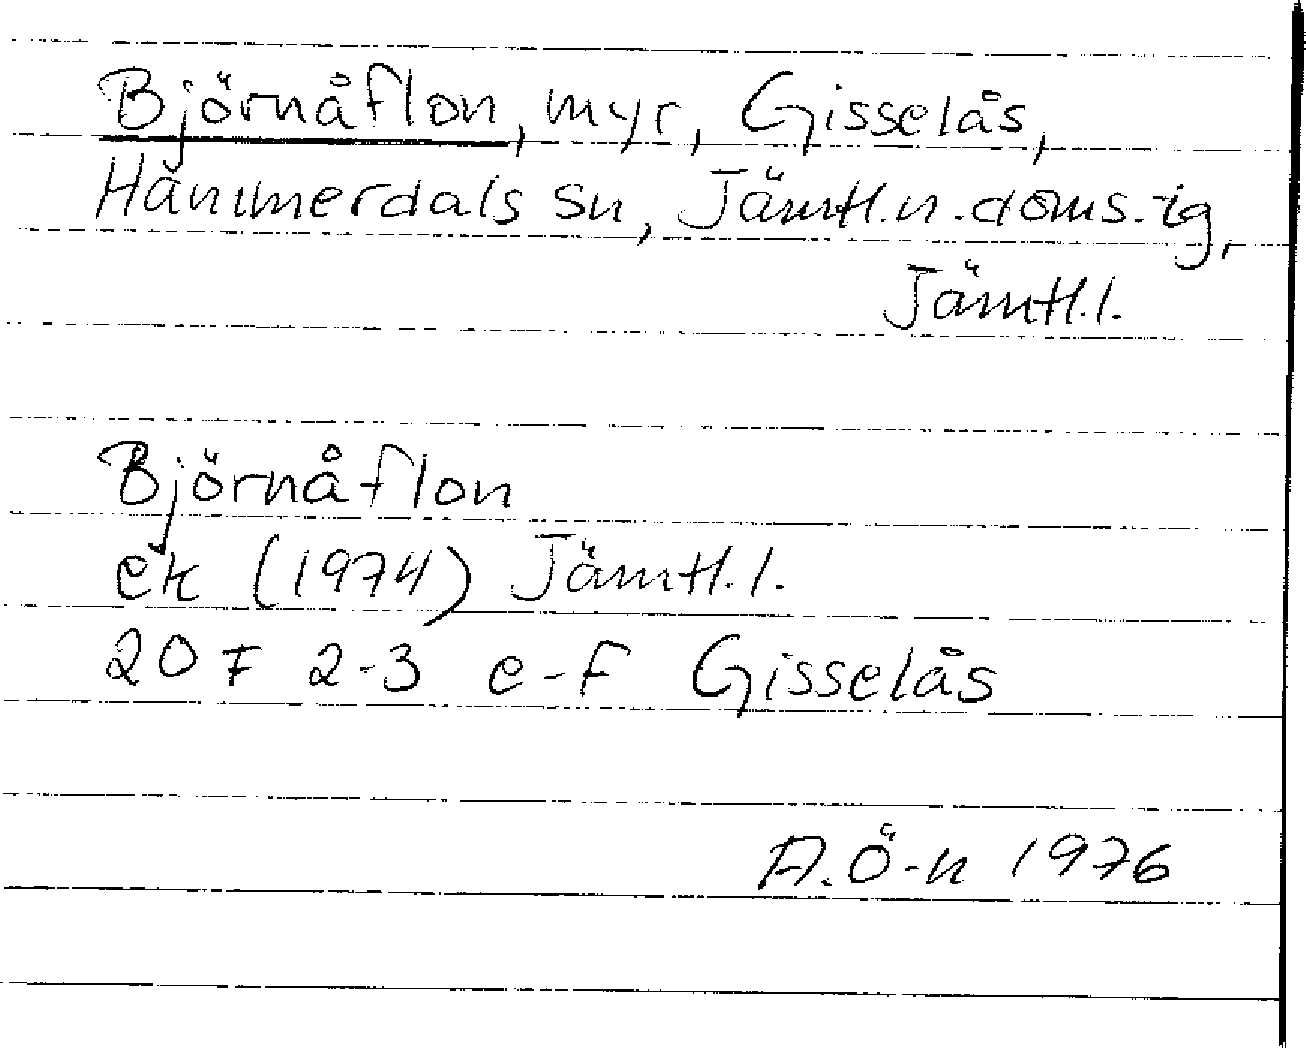 Björnåflon, myr, Gisselås,
Hammerdals sn, Jämtl.n.doms.-ig,
Jämtl.l.
Björnåflon
ek (1974) Jämtl.l.
20 F 2-3 e-f Gisselås
A.Ö-n 1976